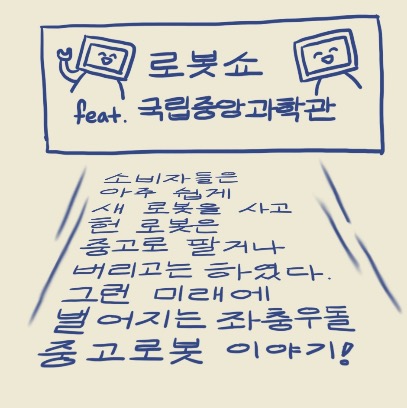 로봇쇼
feat. 국립중앙과학관
소비자들은
아주 쉽게
새 로봇을 사고
헌 로봇은
중고로 팔거나
버리고는 하였다.
그런 미래에
벌어지는 좌충우돌
중고로봇 이야기!